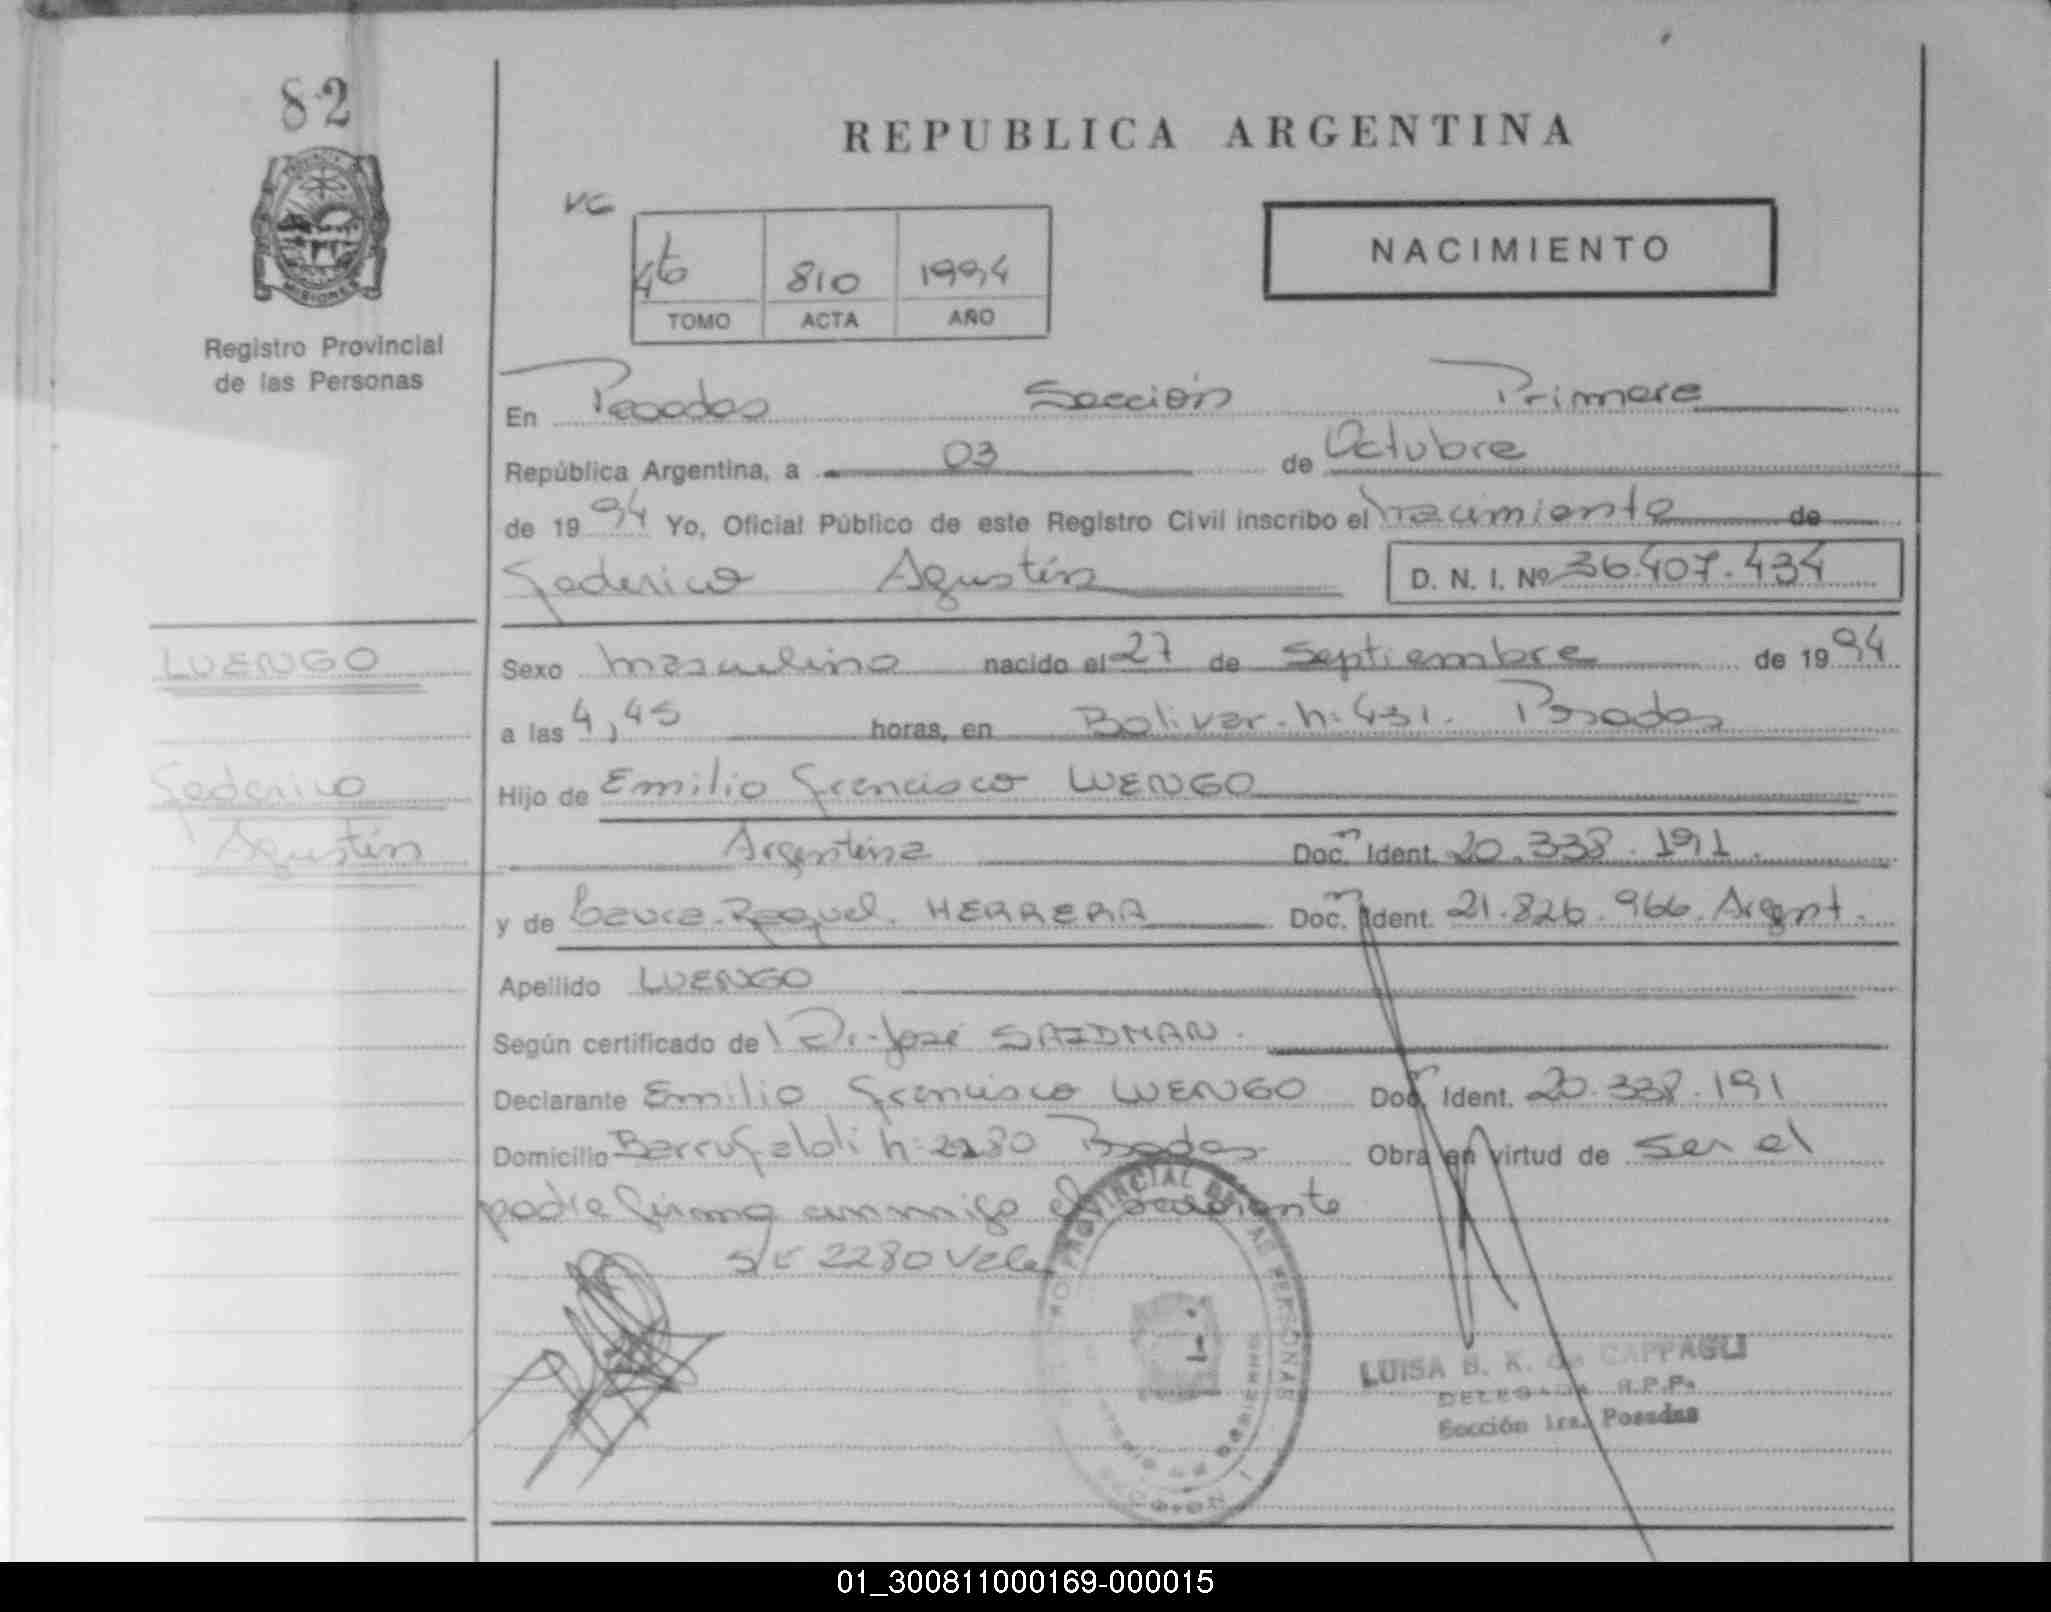 82
REPUBLICA ARGENTINA
VC
46 810 1994
TOMO ACTA AÑO
NACIMIENTO
MISIONES
Registro Provincial
de las Personas
En Posadas Sección Primera
República Argentina, a 03 de Octubre
de 1994 Yo, Oficial Público de este Registro Civil inscribo el nacimiento de
Federico Agustín D. N. I. Nº 36.407.434
LUENGO
Sexo masculino nacido el 27 de Septiembre de 1994
a las 4,45 horas, en Bolivar. n: 431. Posadas
Federico
Hijo de Emilio Francisco LUENGO
Agustín
Argentina Doc. Ident. 20.338.191.
y de Laura Raquel HERRERA Doc. Ident. 21.826.966. Argent.
Apellido LUENGO
Según certificado de Dr. José SAIDMAN.
Declarante Emilio Francisco LUENGO Doc. Ident. 20.338.191
Domicilio n: 2280 Posadas Obra en virtud de ser el
padre firma conmigo el
s/r 2280 Vale
PROVINCIAL DE LAS PERSONAS
1
LUISA B. K. de CAPPAGLI
DELEGADA R.P.P.
Sección 1ra. Posadas
01_300811000169-000015